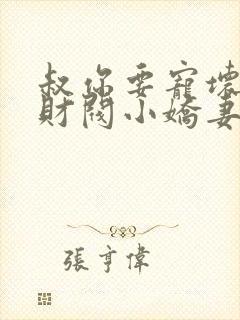 叔你要寵壞
財閥小嬌妻
張亨偉